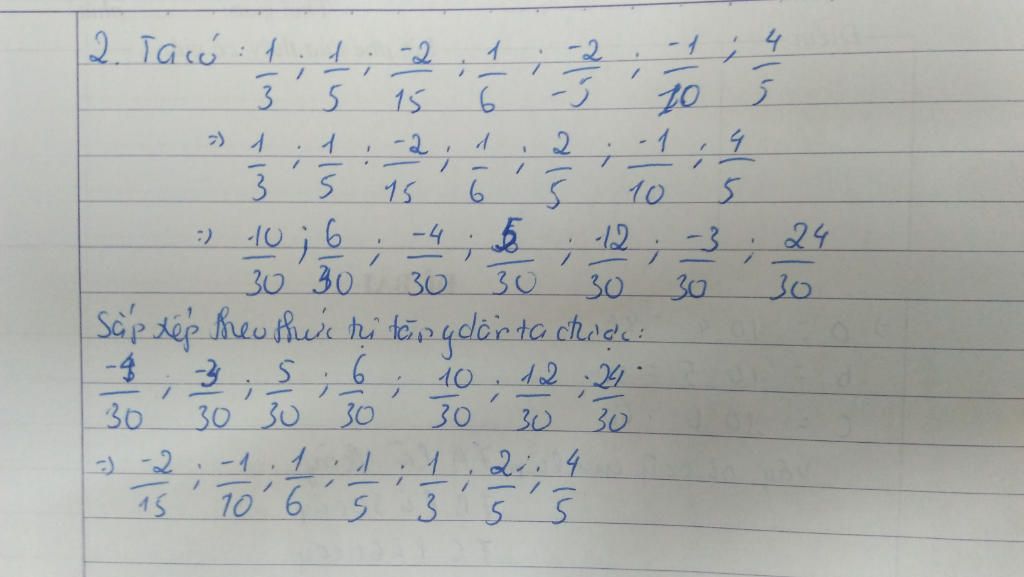 2. Ta có : 1/3 ; 1/5 ; -2/15 ; 1/6 ; -2/-5 ; -1/10 ; 4/5
=> 1/3 ; 1/5 : -2/15 ; 1/6 ; 2/5 ; -1/10 ; 4/5
=> 10/30 ; 6/30 ; -4/30 ; 5/30 ; 12/30 ; -3/30 ; 24/30
Sắp xếp theo thức tự tăng dần ta được :
-4/30 ; -3/30 ; 5/30 ; 6/30 ; 10/30 ; 12/30 ; 24/30
=> -2/15 ; -1/10 ; 1/6 ; 1/5 ; 1/3 ; 2/5 ; 4/5